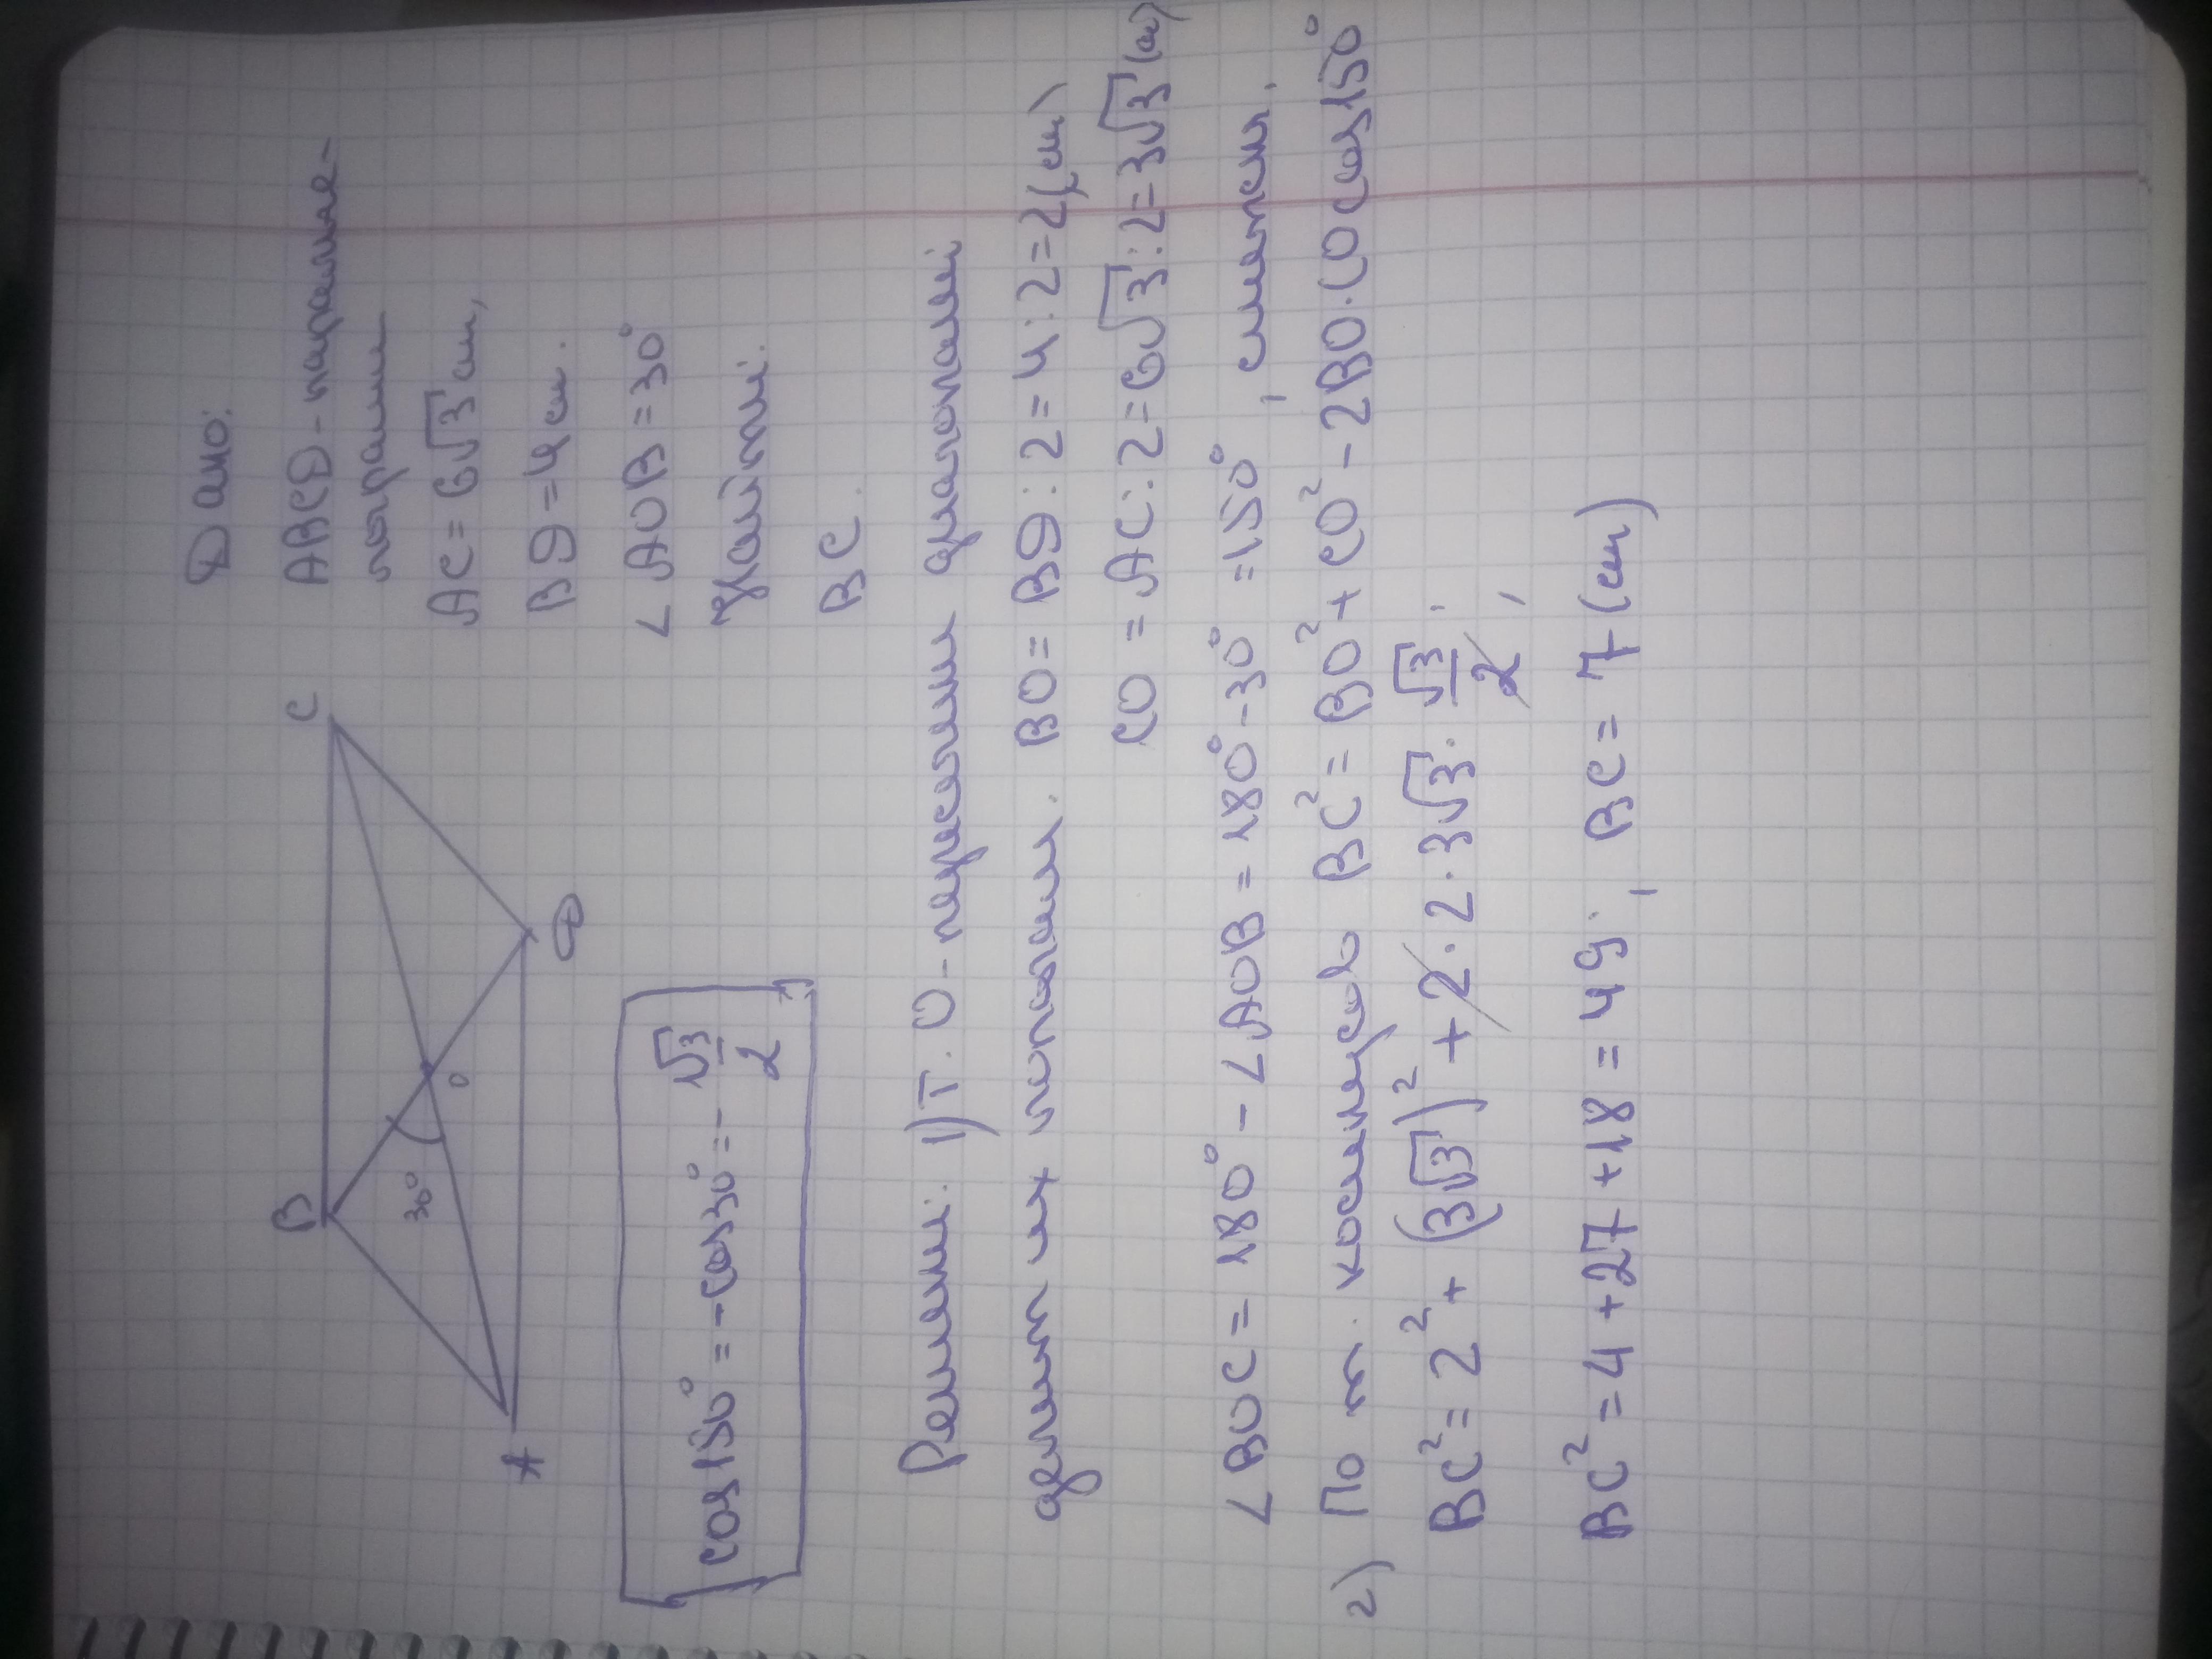 B
C
30°
O
A
D
Дано:
ABCD - паралле-
лограмм
AC = 6√3 см,
BD = 4 см.
∠AOB = 30°
Найти:
BC.
cos150° = -cos30° = -√3/2
Решение: 1) Т. О - пересечения диагоналей
делит их пополам. BO = BD : 2 = 4 : 2 = 2 (см)
CO = AC : 2 = 6√3 : 2 = 3√3 (см)
∠BOC = 180° - ∠AOB = 180° - 30° = 150°, смежн.
2) По т. косинусов BC² = BO² + CO² - 2BO·CO cos150°
BC² = 2² + (3√3)² + 2·2·3√3·√3/2;
BC² = 4 + 27 + 18 = 49; BC = 7 (см)